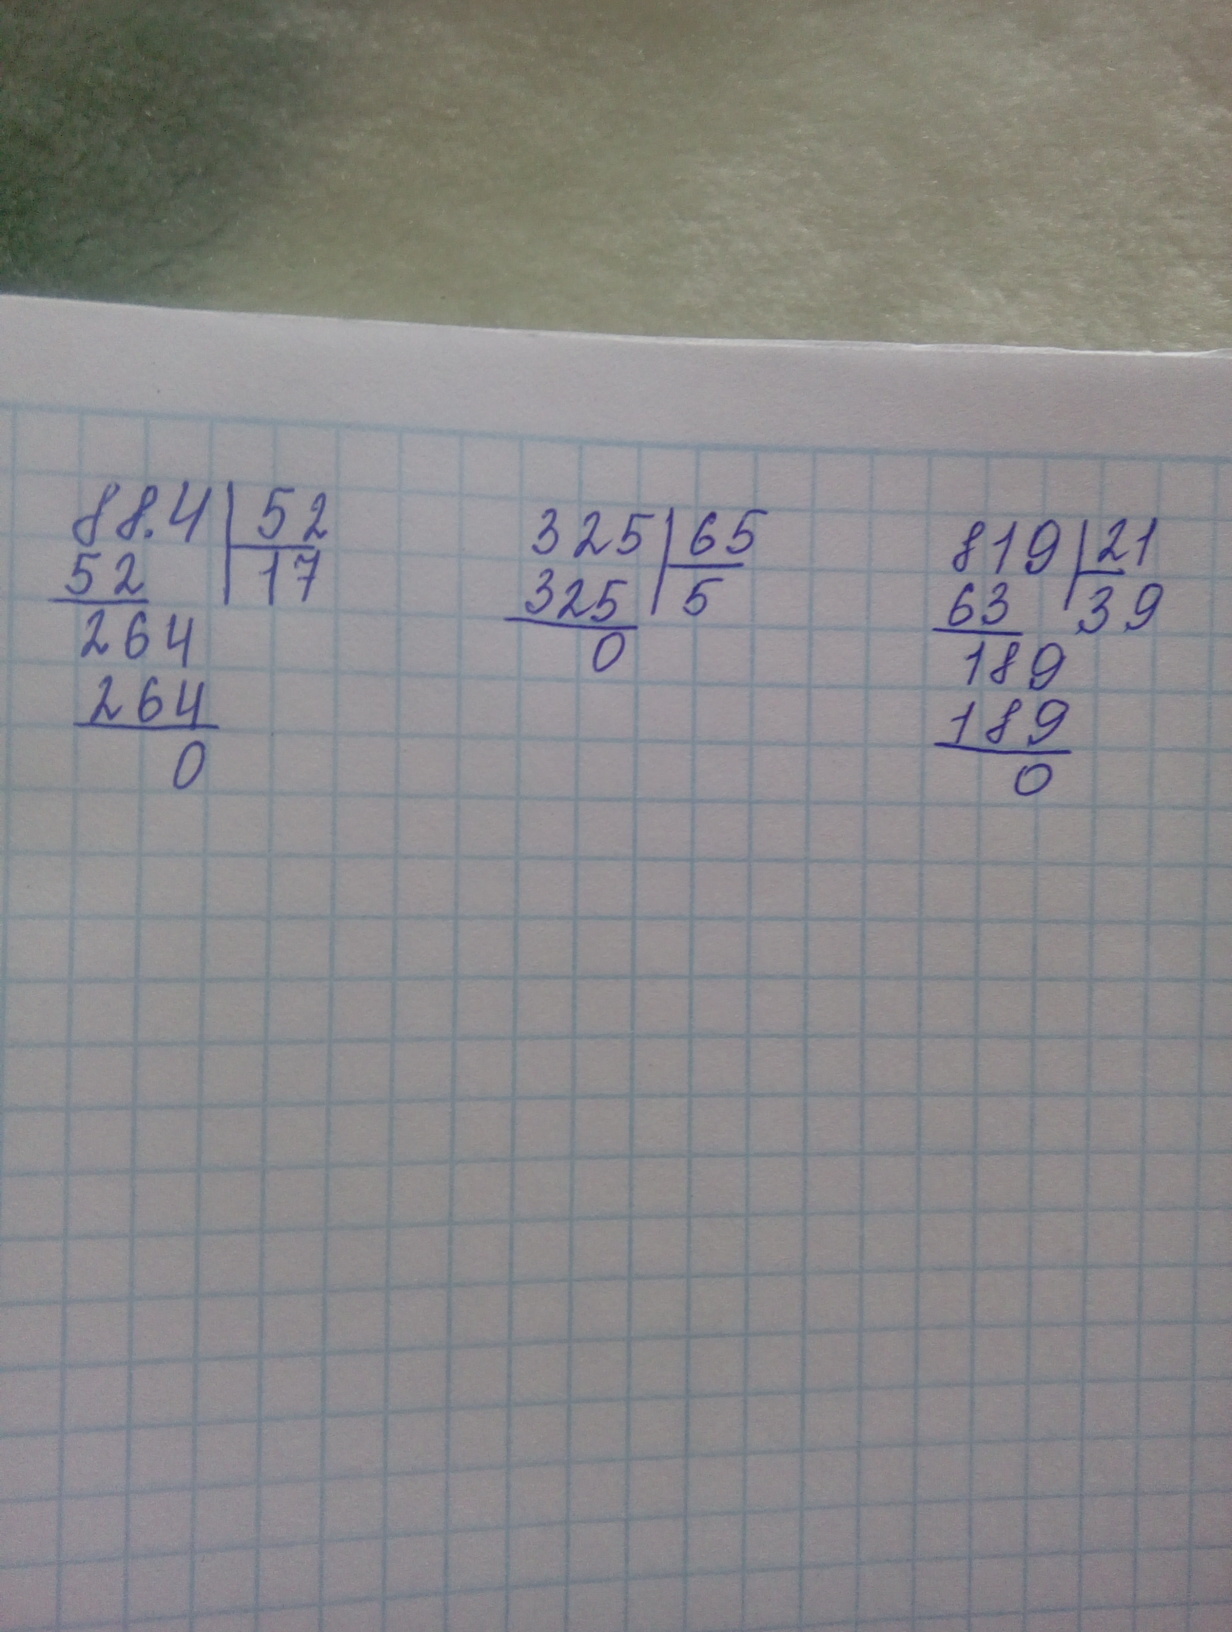 88.4 52
52 17
264
264
0
325 65
325 5
0
819 21
63 39
189
189
0